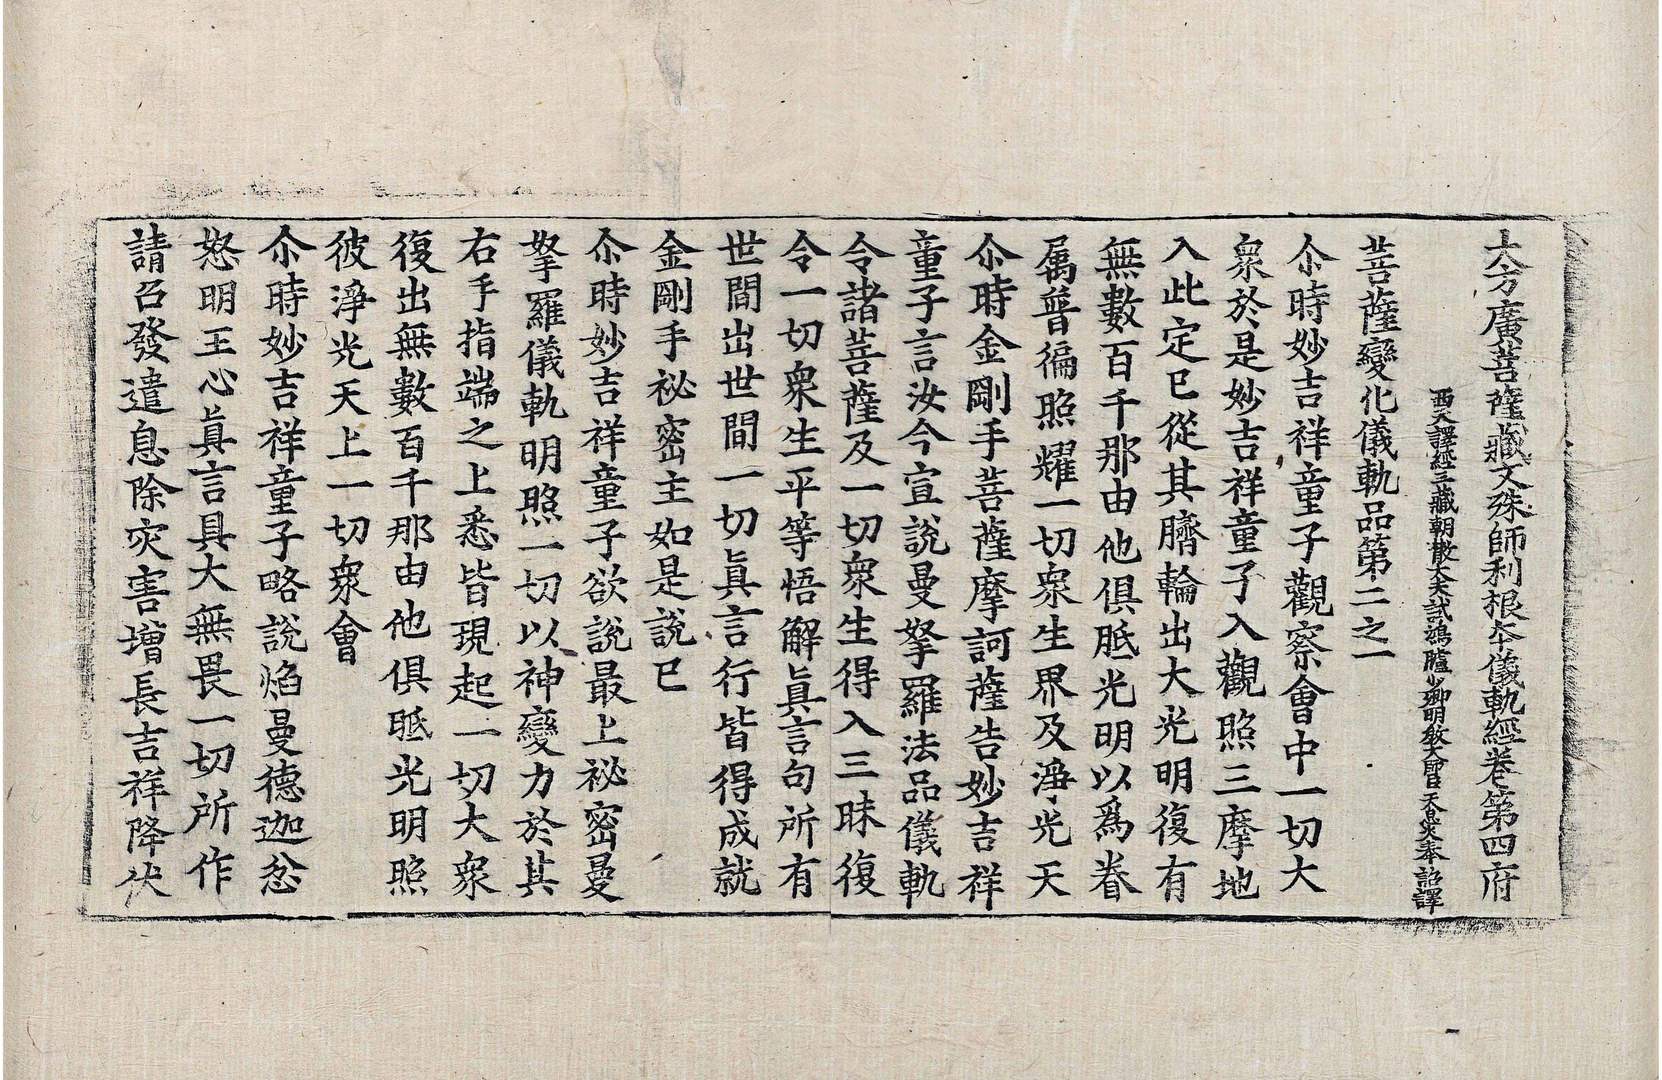 大方廣菩薩藏文殊師利根本儀軌經卷第四府
西天譯經三藏朝散大夫試鴻臚少卿明教大師臣天息災奉詔譯
菩薩變化儀軌品第二之一
尒時妙吉祥童子觀察會中一切大
衆於是妙吉祥童子入觀照三摩地
入此定已從其臍輪出大光明復有
無數百千那由他俱胝光明以爲眷
属普徧照耀一切衆生界及淨光天
尒時金剛手菩薩摩訶薩告妙吉祥
童子言汝今宣說曼拏羅法品儀軌
令諸菩薩及一切衆生得入三昧復
令一切衆生平等悟解眞言句所有
世間出世間一切眞言行皆得成就
金剛手祕密主如是說已
尒時妙吉祥童子欲說最上祕密曼
拏羅儀軌明照一切以神變力於其
右手指端之上悉皆現起一切大衆
復出無數百千那由他俱胝光明照
彼淨光天上一切衆會
尒時妙吉祥童子略說焰曼德迦忿
怒明王心眞言具大無畏一切所作
請召發遣息除灾害增長吉祥降伏